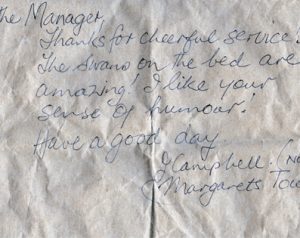 the Manager,
Thanks for cheerful service!
The swans on the bed are
amazing! I like your
sense of humour!
Have a good day.
Campbell. (No
Margarets Tow